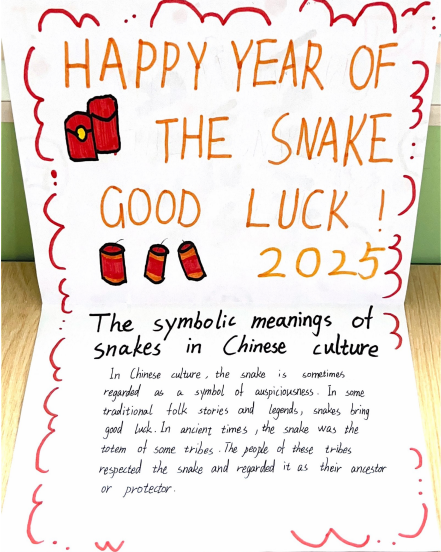 HAPPY YEAR OF
THE SNAKE
GOOD LUCK!
2025
The symbolic meanings of
snakes in Chinese culture
In Chinese culture, the snake is sometimes
regarded as a symbol of auspiciousness. In some
traditional folk stories and legends, snakes bring
good luck. In ancient times, the snake was the
totem of some tribes. The people of these tribes
respected the snake and regarded it as their ancestor
or protector.